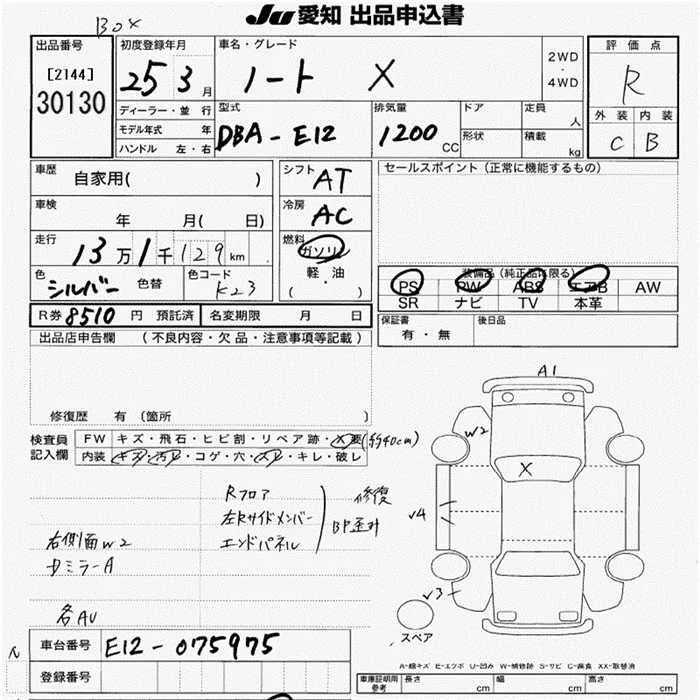 JU 愛知 出品申込書
BOX
出品番号
[2144]
30130
初度登録年月
25 3 月
ディーラー・並行
モデル年式 年
ハンドル 左・右
車名・グレード
ノート X
2WD
・
4WD
型式
DBA-E12
排気量
1200 CC
ドア
形状
定員 人
積載 kg
評価点
R
外装 内装
C B
車歴
自家用( )
車検
年 月( 日)
走行
13万1千129km
色
シルバー 色替
色コード
K23
シフト
AT
冷房
AC
燃料
ガソリン
軽・油
( )
セールスポイント(正常に機能するもの)
装備品(純正品に限る)
PS PW ABS エアB AW
SR ナビ TV 本革
R券 8510 円 預託済 名変期限 月 日
保証書
有・無
後日品
出品店申告欄 (不良内容・欠品・注意事項等記載)
修復歴 有 (箇所 )
検査員
記入欄
FW キズ・飛石・ヒビ割・リペア跡・X要(約40cm)
内装 キズ・汚レ・コゲ・穴・スレ・キレ・破レ
Rフロア
左Rサイドメンバー
エンドパネル
修復
BP歪み
右側面W2
ミラーA
各AU
A1
W2
X
√4
√3
スペア
A-線キズ E-エクボ U-凹み W-補修跡 S-サビ C-腐食 XX-取替済
車台番号 E12-075975
登録番号
車庫証明用
参考
長さ cm 幅 cm 高さ cm